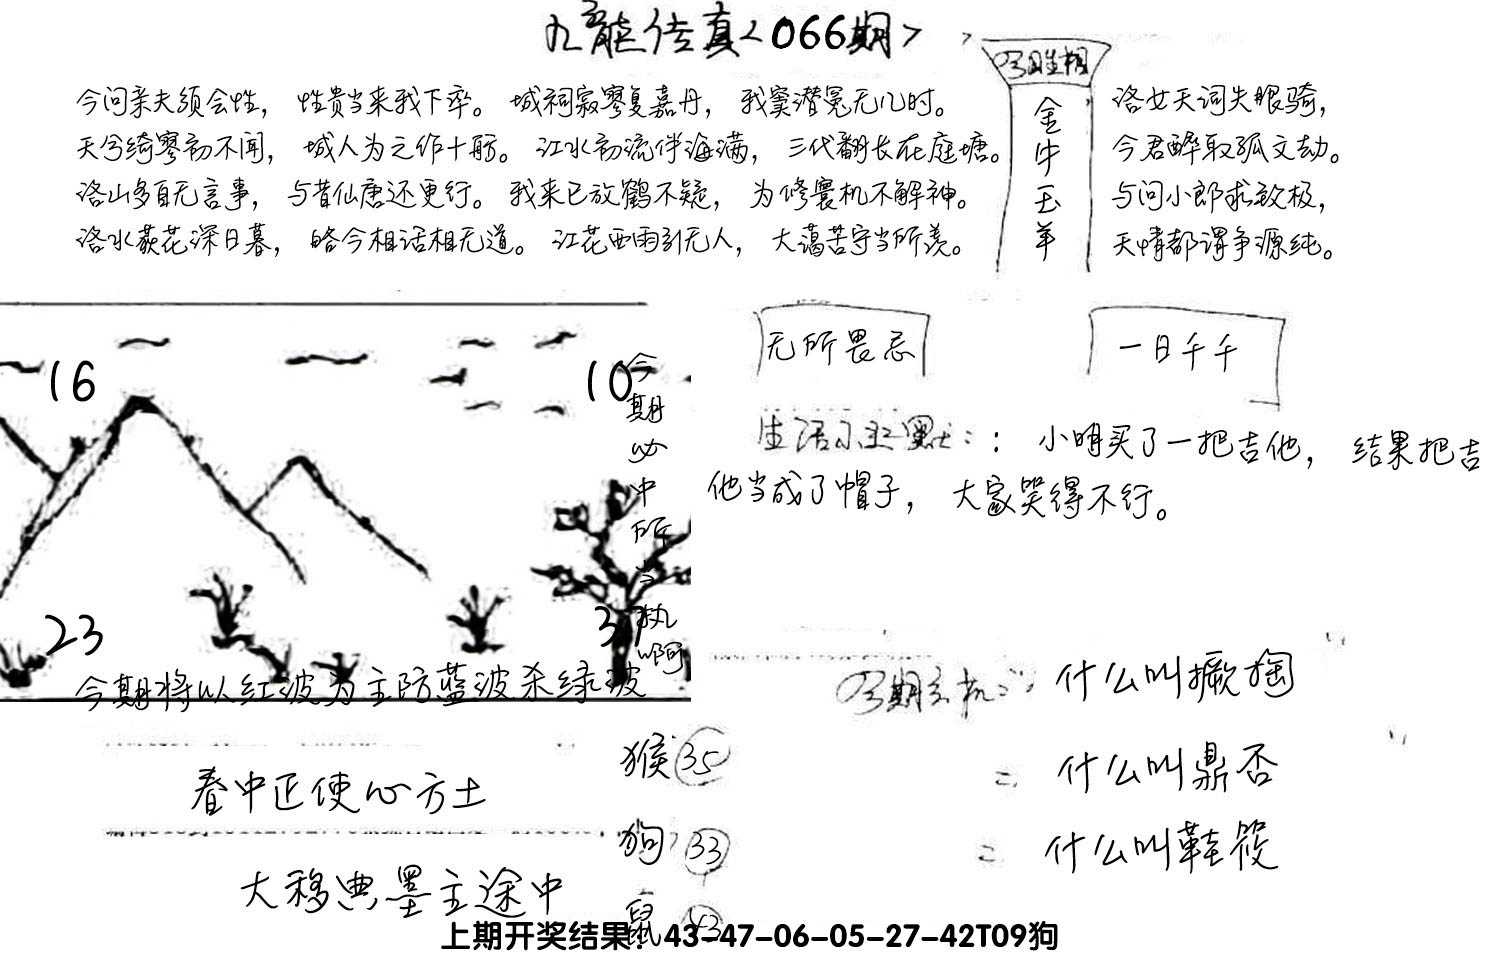 九龙传真<066期>
今问亲夫须会性，性贵当来我下卒。城祠寂寥复嘉丹，我窦潜冤无儿时。
天兮绮寥初不闻，城人为之作十舫。江水初流伴海满，三代翻长在庭塘。
洛山多自无言事，与昔仙唐还更行。我来已放鹤不疑，为修寰机不解神。
洛水荻花深日暮，皓今相话相无道。江花西雨引无人，大蔼苦守当所羡。
金牛玉羊
洛女天词失眼骑，
今君醉取孤文劫。
与问小郎求致极，
天情都谓争源纯。
无所畏忌
一日千千
16
10
23
今期必中所当执啊
今期将以红波为主防蓝波杀绿波
生活小幽默：：小明买了一把吉他，结果把吉
他当成了帽子，大家笑得不行。
今期玄机：：什么叫撅掏
= 什么叫鼎否
= 什么叫鞋筱
春中正使心方土
大移典墨主途中
猴 35
狗 33
鼠
上期开奖结果：43-47-06-05-27-42T09狗